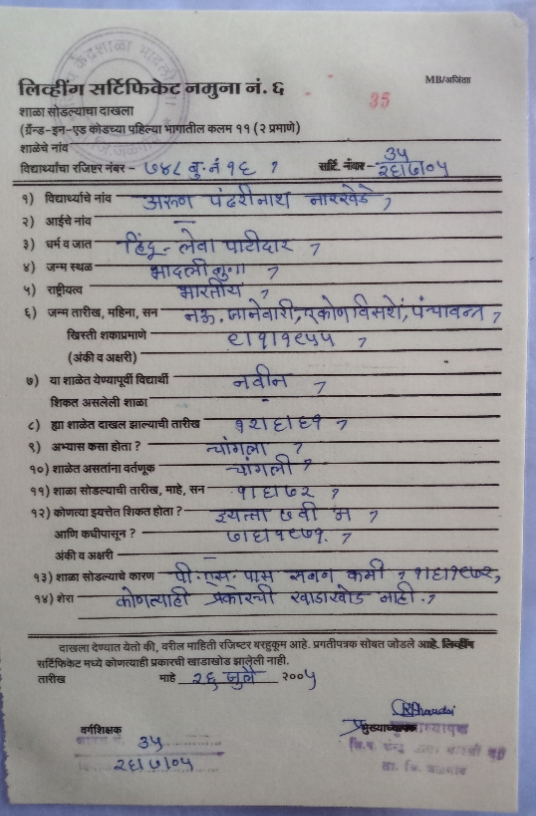 MB/अजिंता
लिव्हींग सर्टिफिकेट नमुना नं. ६
35
शाळा सोडल्याचा दाखला
(ग्रॅन्ड-इन-एड कोडच्या पहिल्या भागातील कलम ११ (२ प्रमाणे)
शाळेचे नांव
विद्यार्थ्यांचा रजिष्टर नंबर - ७४८ बु.नं १६ सर्टि. नंबर - ३५
२६/७/०५
१) विद्यार्थ्याचे नांव अरुण पंढरीनाथ नारखेडे
२) आईचे नांव —
३) धर्म व जात हिंदू - लेवा पाटीदार
४) जन्म स्थळ भादली बुगा
५) राष्ट्रीयत्व भारतीय
६) जन्म तारीख, महिना, सन नऊ, जानेवारी, एकोणविसशें, पंच्यावन्न
ख्रिस्ती शकाप्रमाणे ९/१/१९५५
(अंकी व अक्षरी)
७) या शाळेत येण्यापूर्वी विद्यार्थी नवीन
शिकत असलेली शाळा
८) ह्या शाळेत दाखल झाल्याची तारीख १२/६/६१
९) अभ्यास कसा होता ? चांगला
१०) शाळेत असतांना वर्तणूक चांगली
११) शाळा सोडल्याची तारीख, माहे, सन १/६/७२
१२) कोणत्या इयत्तेत शिकत होता ? इयत्ता ७वी अ
आणि कधीपासून ? ७/६/१९७१.
अंकी व अक्षरी —
१३) शाळा सोडल्याचे कारण पी. एस. पास सबब कमी १/६/१९७२,
१४) शेरा कोणत्याही प्रकारची खाडाखोड नाही.
दाखला देण्यात येतो की, वरील माहिती रजिष्टर बरहुकूम आहे. प्रगतीपत्रक सोबत जोडले आहे. लिव्हींग
सर्टिफिकेट मध्ये कोणत्याही प्रकारची खाडाखोड झालेली नाही.
तारीख माहे २६ जुलै २००५
वर्गशिक्षक मुख्याध्यापक
३५
२६/७/०५